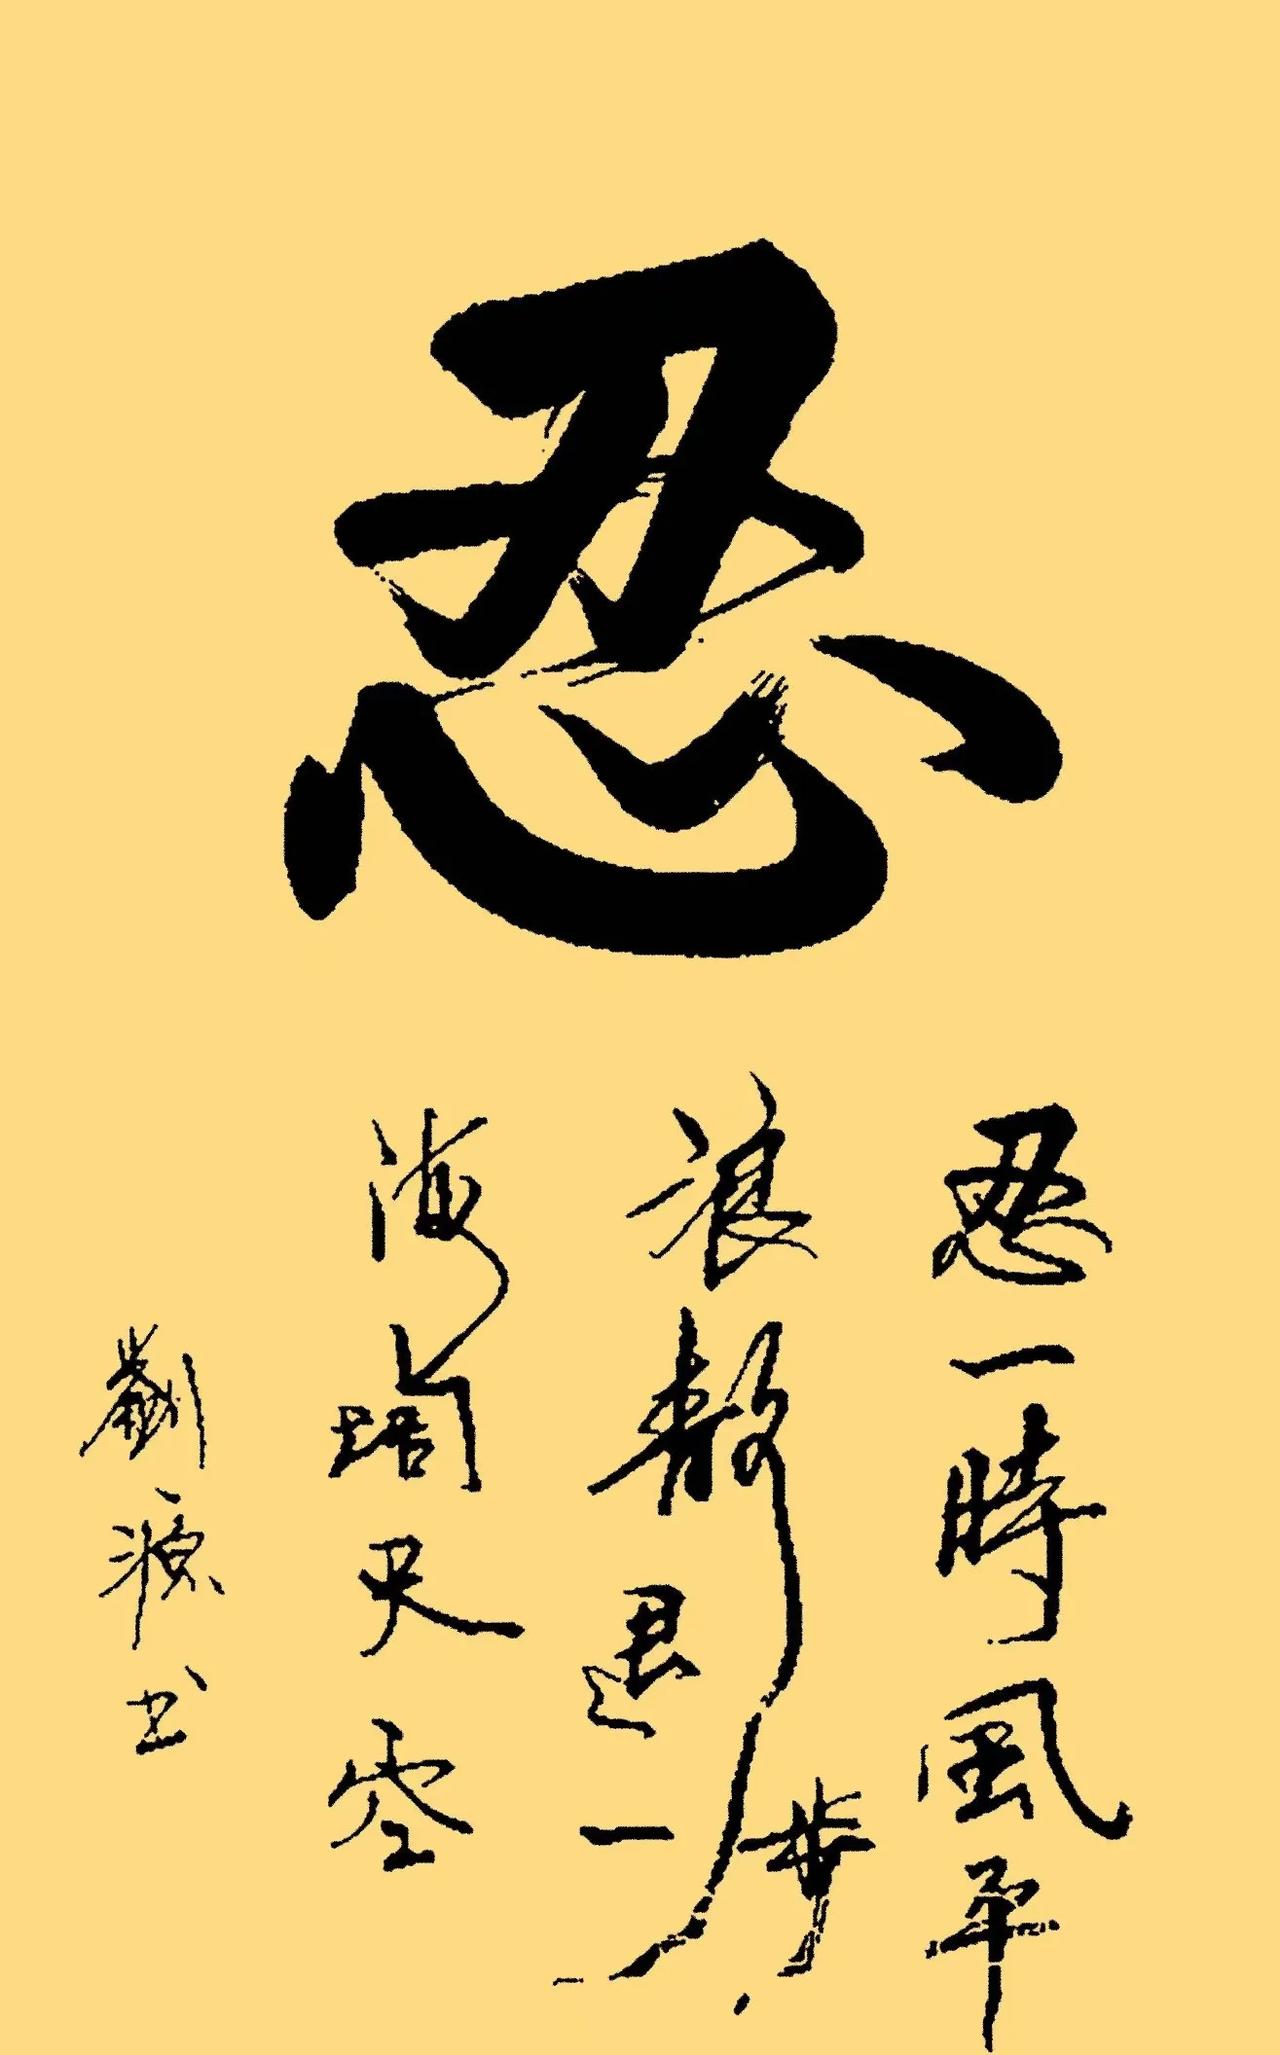 忍
忍一時風平
浪靜退一步
海闊天空
劉源书